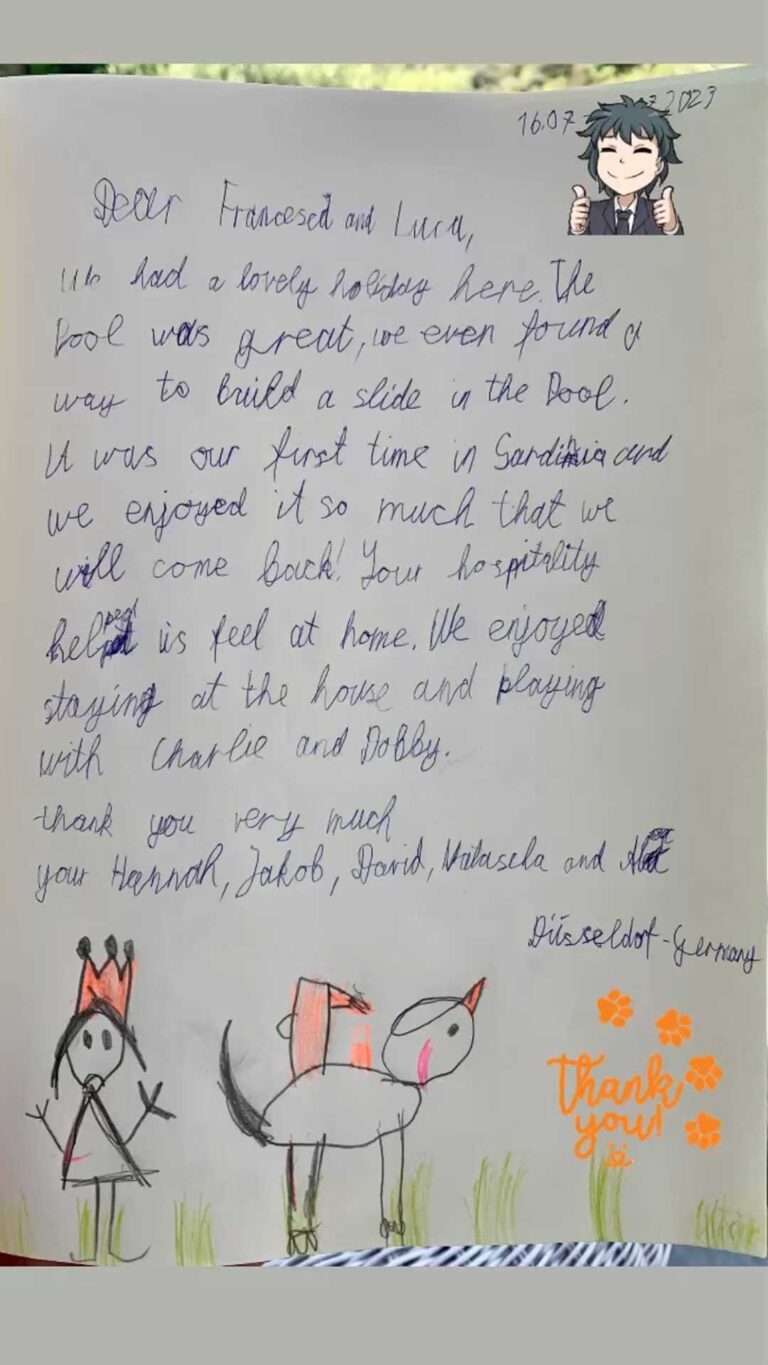 16.07 2023
Dear Francesca and Luca,
We had a lovely holiday here. The
Pool was great, we even found a
way to build a slide in the Pool.
It was our first time in Sardinia and
we enjoyed it so much that we
will come back! Your hospitality
helped us feel at home. We enjoyed
staying at the house and playing
with Charlie and Dobby.
thank you very much
your Hannah, Jakob, David, and
Düsseldorf-Germany
thank
you!